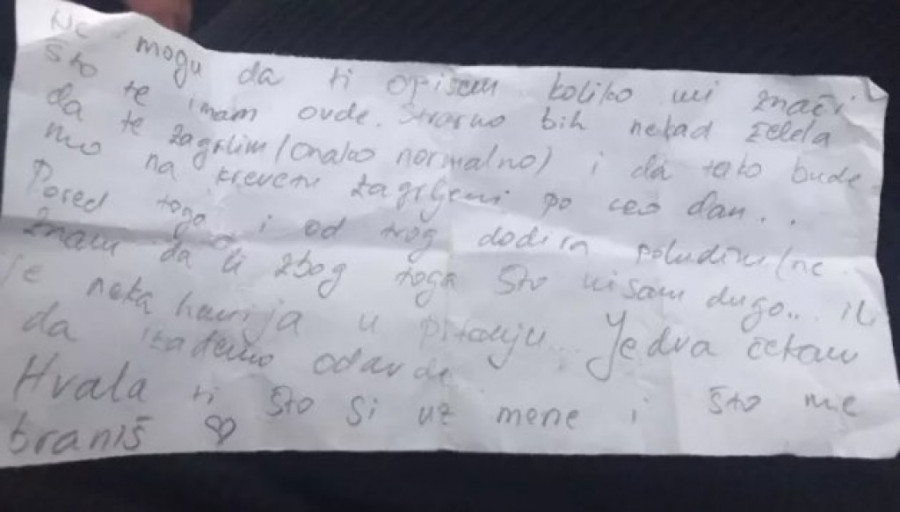 Ne mogu da ti opisem koliko mi znači
što te imam ovde. Stvarno bih nekad želela
da te zagrlim (onako normalno) i da tako bude
mo na krevetu zagrljeni po ceo dan...
Pored toga i od tvog dodira poludim (ne
znam da li zbog toga što nisam dugo.. ili
je neka hemija u pitanju... Jedva čekam
da izađemo odavde
Hvala ti što si uz mene i što me
braniš ♡